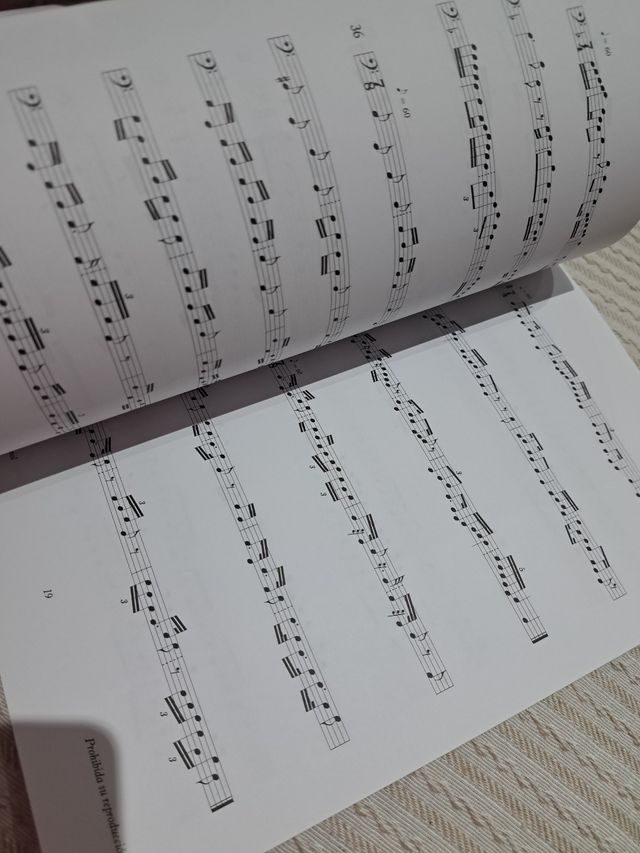 ♩ = 60
36
♪ = 60
3
3
3
3
3
3
3
3
3
3
3
6
19
Prohibida su reproducció